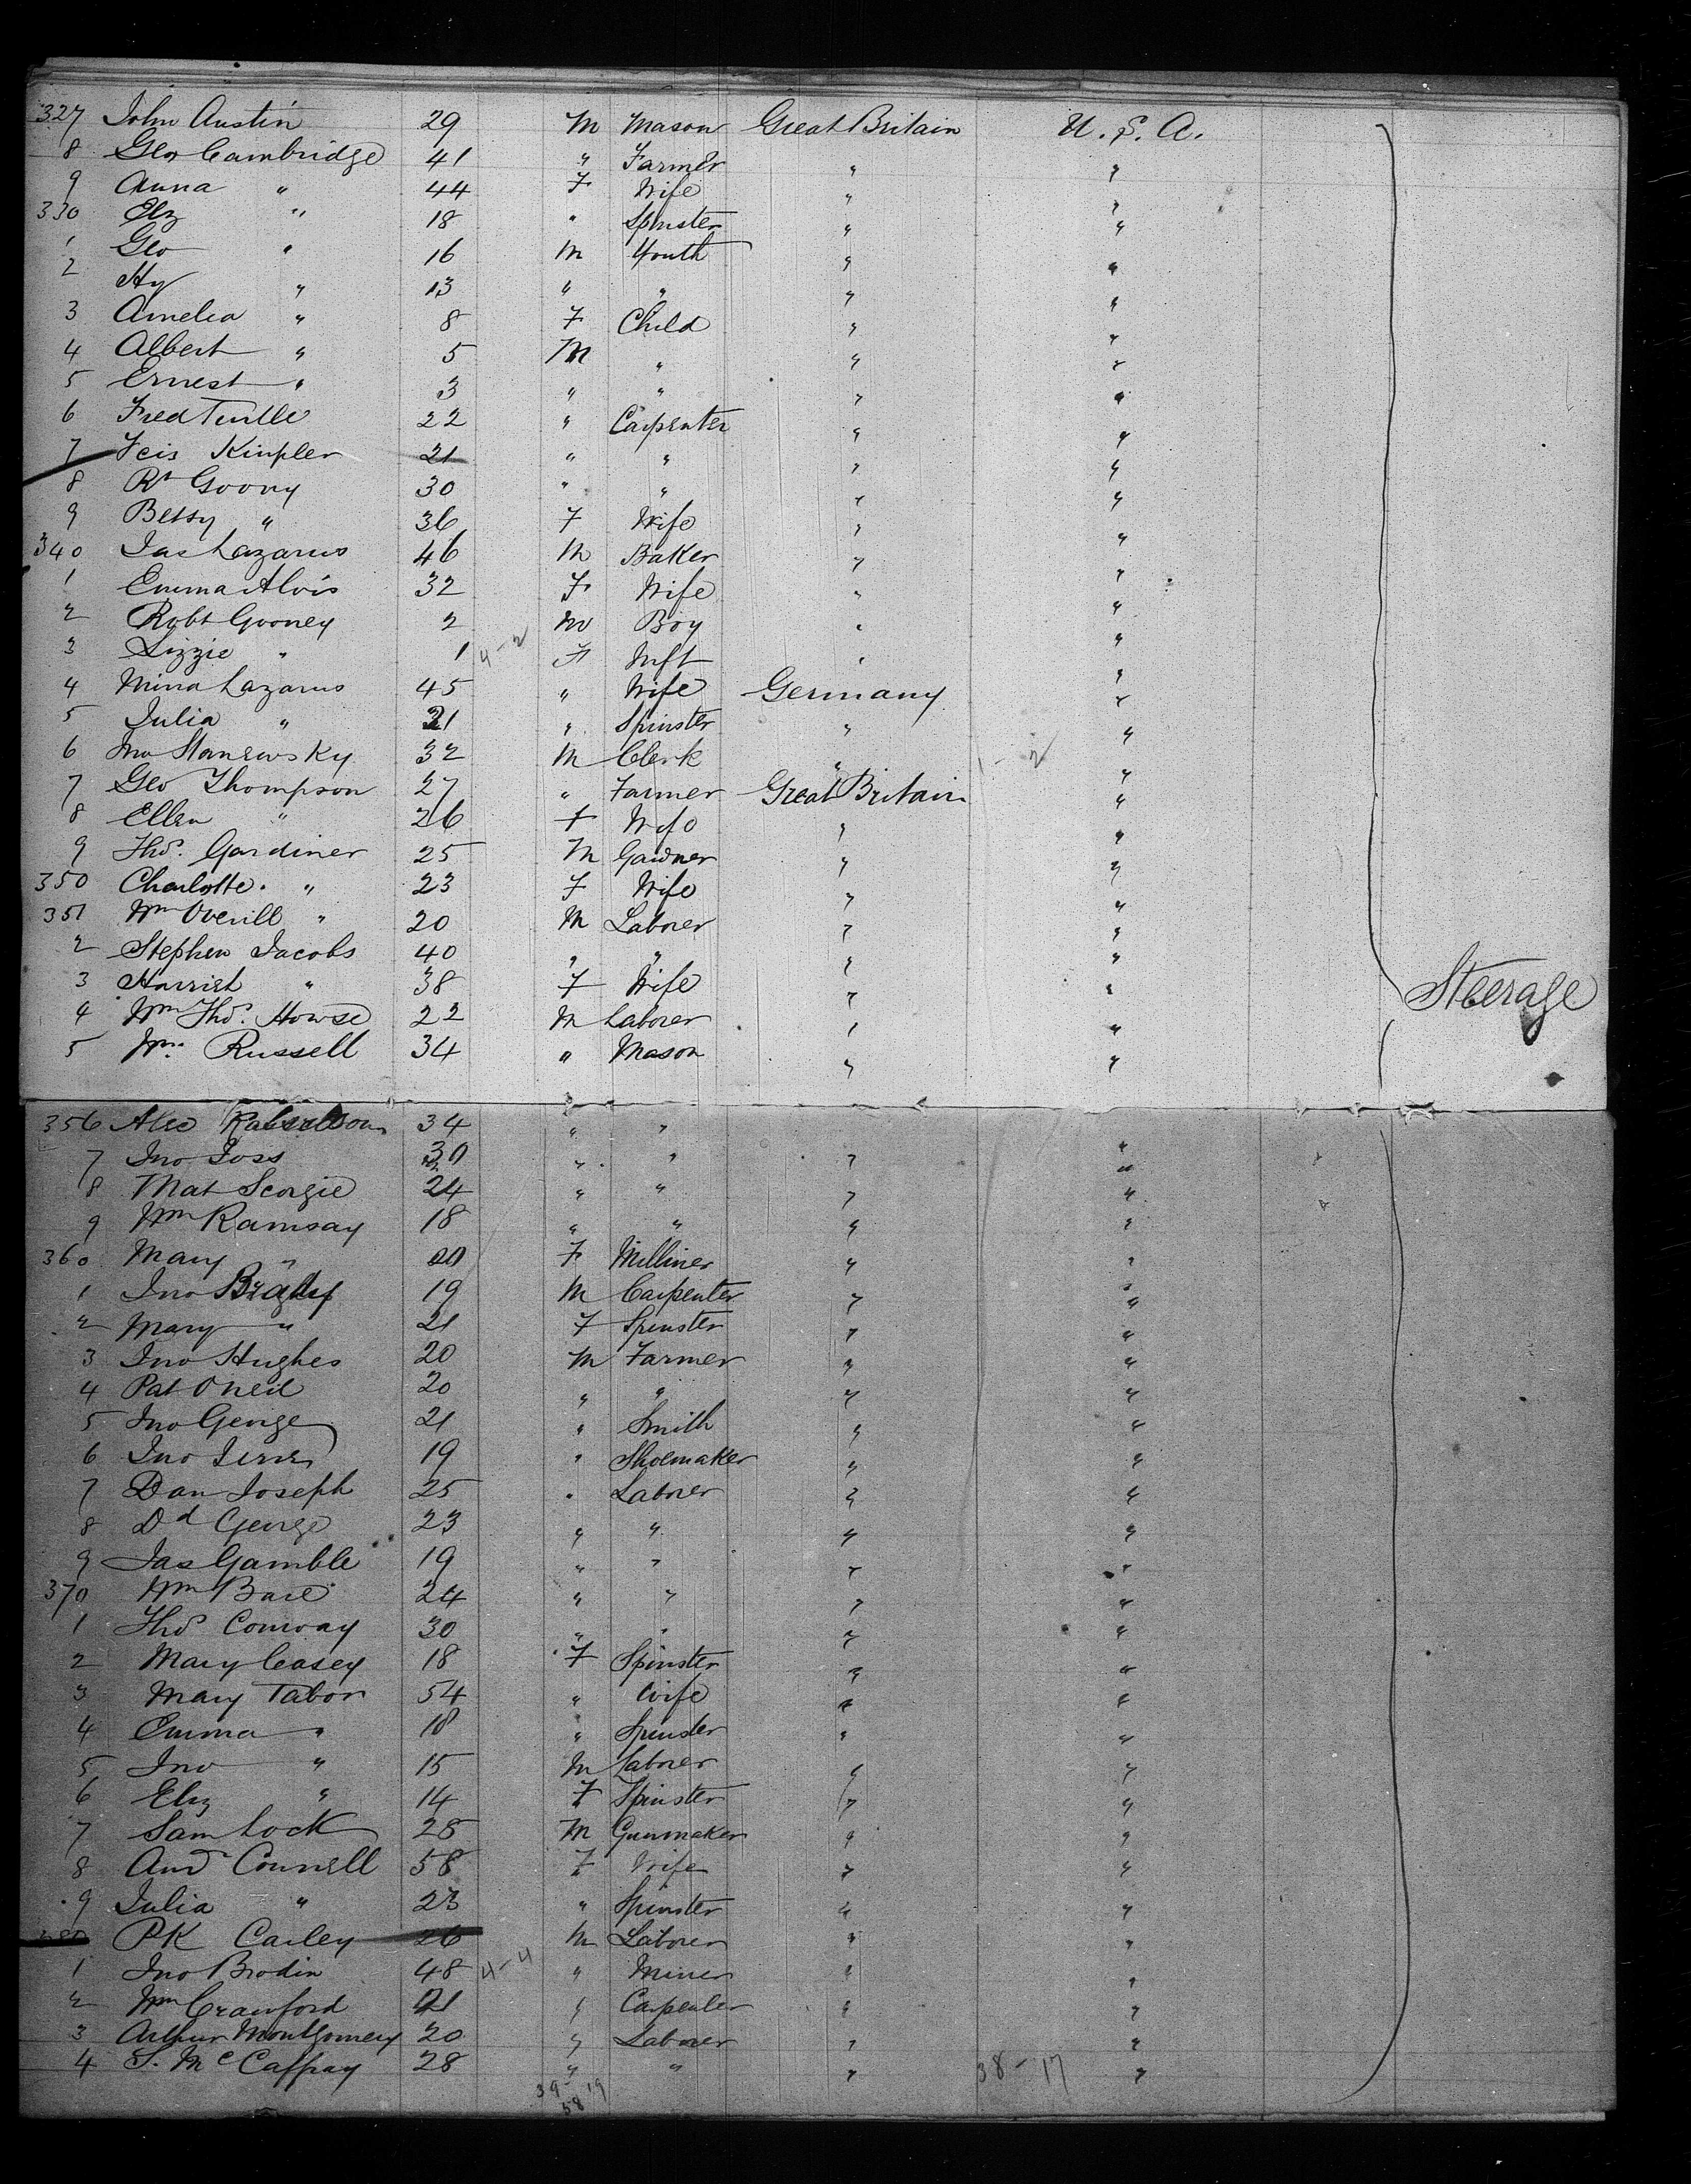 327 John Austin 29 M Mason Great Britain U. S. A.
8 Geo Cambridge 41 " Farmer " "
9 Anna " 44 F Wife " "
330 Elz " 18 " Spinster " "
1 Geo " 16 M Youth " "
2 Hy " 13 " " " "
3 Amelia " 8 F Child " "
4 Albert " 5 M " " "
5 Ernest " 3 " " " "
6 Fred Turtle 22 " Carpenter " "
7 Fcis Kinpler 21 " " " "
8 Rt Goony 30 " " " "
9 Betsy " 36 F Wife " "
340 Jas Lazarus 46 M Baker " "
1 Emma Alvis 32 F Wife " "
2 Robt Gooney 2 M Boy " "
3 Lizzie " 1 4-2 F Inft " "
4 Mina Lazarus 45 " Wife Germany "
5 Julia " 21 " Spinster " "
6 Jno Stanewsky 32 M Clerk " 1-2 "
7 Geo Thompson 27 " Farmer Great Britain "
8 Ellen " 26 F Wife " "
9 Thos. Gardiner 25 M Gardner " "
350 Charlotte " 23 F Wife " "
351 Wm Overill " 20 M Laborer " "
2 Stephen Jacobs 40 " " " "
3 Harriet " 38 F Wife " " Steerage
4 Wm Thos. Howse 22 M Laborer " "
5 Wm. Russell 34 " Mason " "
356 Alec 34 " " "
7 Jno Joss 30 " " " "
8 Mat Scorgie 24 " " " "
9 Wm Ramsay 18 " " " "
360 Mary " F Milliner " "
1 Jno Brady 19 M Carpenter " "
2 Mary " 21 F Spinster " "
3 Jno Hughes 20 M Farmer " "
4 Pat O'neil 20 " " " "
5 Jno George 21 " Smith " "
6 Jno 19 " Shoemaker " "
7 Dan Joseph 25 " Laborer " "
8 Dd George 23 " " " "
9 Jas Gamble 19 " " " "
370 Wm 24 " " " "
1 Thos Conway 30 " " " "
2 Mary Casey 18 F Spinster " "
3 Mary Tabor 54 " Wife " "
4 Emma " 18 " Spinster " "
5 Jno " 15 M Laborer " "
6 Elz " 14 F Spinster " "
7 Sam Lock 28 M Gunmaker " "
8 And Connell 58 F Wife " "
9 Julia " 23 " Spinster " "
380 PK Carley 26 M Laborer " "
1 Jno Brodin 48 4-4 " Miner " "
2 Wm Crawford 21 " Carpenter " "
3 Arthur Montgomery 20 " Laborer " "
4 S. McCaffray 28 " " " 38-17 "
39-19
58